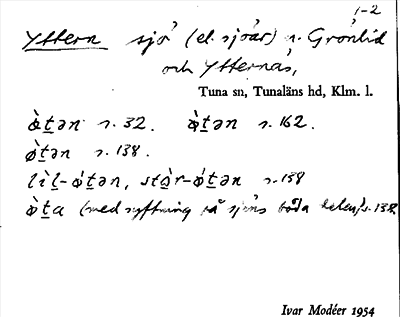 1-2
Yttern sjö (el. sjöar) n. Grönlid
och Ytternäs,
Tuna sn, Tunaläns hd, Klm. l.
ø̀tən s. 32. ø̀tən s. 162.
ø̀tən s. 138.
lìl-ǿtən, stòr-ǿtən s. 138
ø̀ta (med syftning på sjöns båda delar) s. 138.
Ivar Modéer 1954